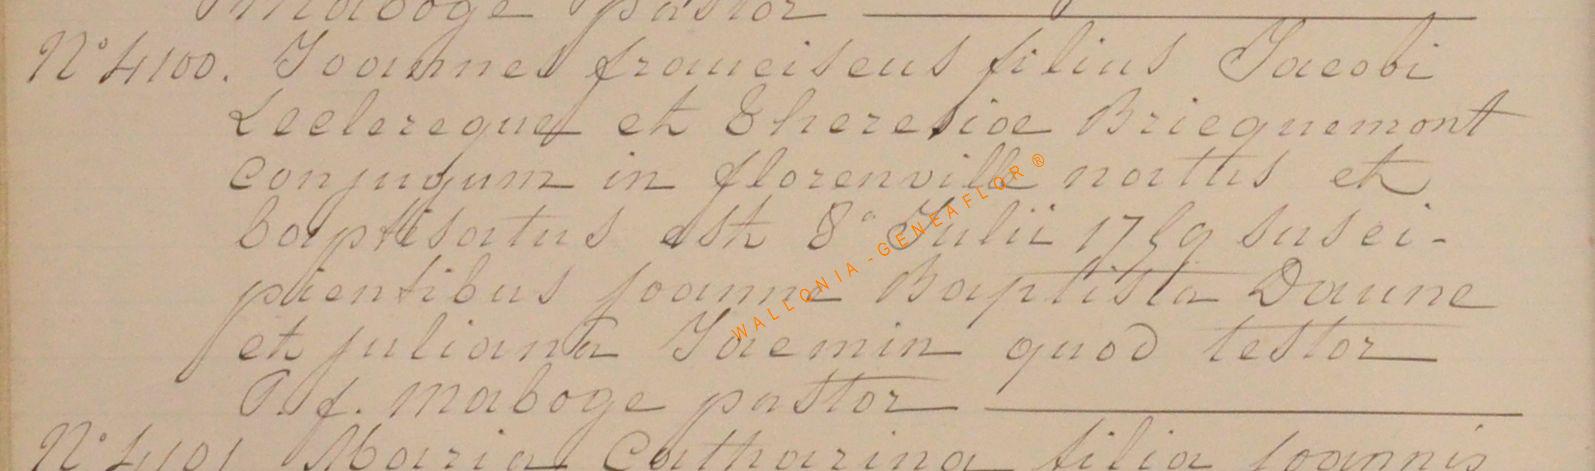 Maboge pastor
N° 4100. Joannes franciscus filius Jacobi
Leclercque et Theresiae Bricquemont
conjugum in florenville nattus et
baptisatus est 8ª Julii 1759 susci-
pientibus joanne Baptista Daune
et juliana Jacmin quod testor
P. f. Maboge pastor
N° 4101 Maria Catharina filia Joannis
WALLONIA - GENEAFLOR ®